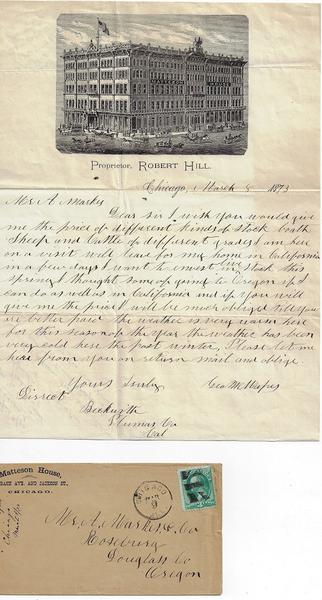 Proprietor, ROBERT HILL.
Chicago, March 8 1873
Mr A. Marks
Dear sir I wish you would give
me the price of different kinds of stock both
Sheep and Cattle of different grades I am here
on a visit will leave for my home in California
in a few days I want to invest in live stock this
spring I thought some of going to Oregon if I
can do as well as in California and if you will
give me the prices I will be much obliged till you
are better paid the weather is very warm here
for this season of the year the weather has been
very cold here the past winter, Please let me
here from you on return mail and oblige
Yours truly
Geo McHapes
Direct
Beckwith
Plumas Co
Cal
Matteson House,
WABASH AVE. AND JACKSON ST.,
CHICAGO.
CHICAGO
MAR
9
Mr. A. Marks, & Co
Roseburg
Douglass Co
Oregon